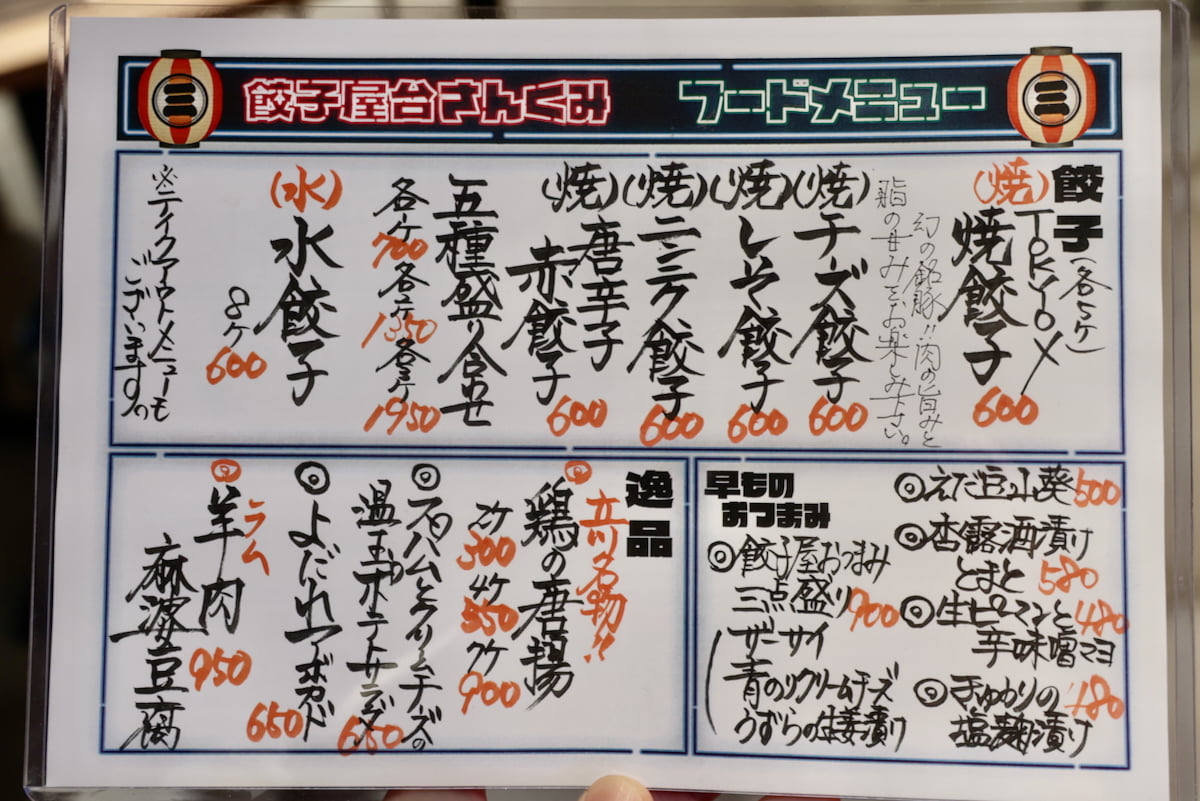 三
餃子屋台さんくみ フードメニュー
三
餃子(各5ヶ)
(焼)TOKYO X
焼餃子 600
幻の銘豚!!肉の旨みと
脂の甘みをお楽しみ下さい。
(焼)チーズ餃子 600
(焼)しそ餃子 600
(焼)ニンニク餃子 600
(焼)唐辛子
赤餃子 600
五種盛り合わせ
各一ケ 700 各二ケ 1350 各三ケ 1950
(水)水餃子
8ヶ 600
※テイクアウトメニューも
ございます。
早もの
おつまみ
◎えだ豆山葵 500
◎杏露酒漬け
とまと 580
◎生ピーマンと 480
辛味噌マヨ
◎きゅうりの 480
塩麹漬け
◎餃子屋おつまみ
三点盛り 700
ザーサイ
青のりクリームチーズ
うずらの生姜漬け
逸品
◎立川名物!!
鶏の唐揚
2ケ 300 4ケ 550 7ケ 900
◎生ハムとクリームチーズの
温玉ポテトサラダ
◎よだれアボカド 650
◎ラム
羊肉 950
麻婆豆腐